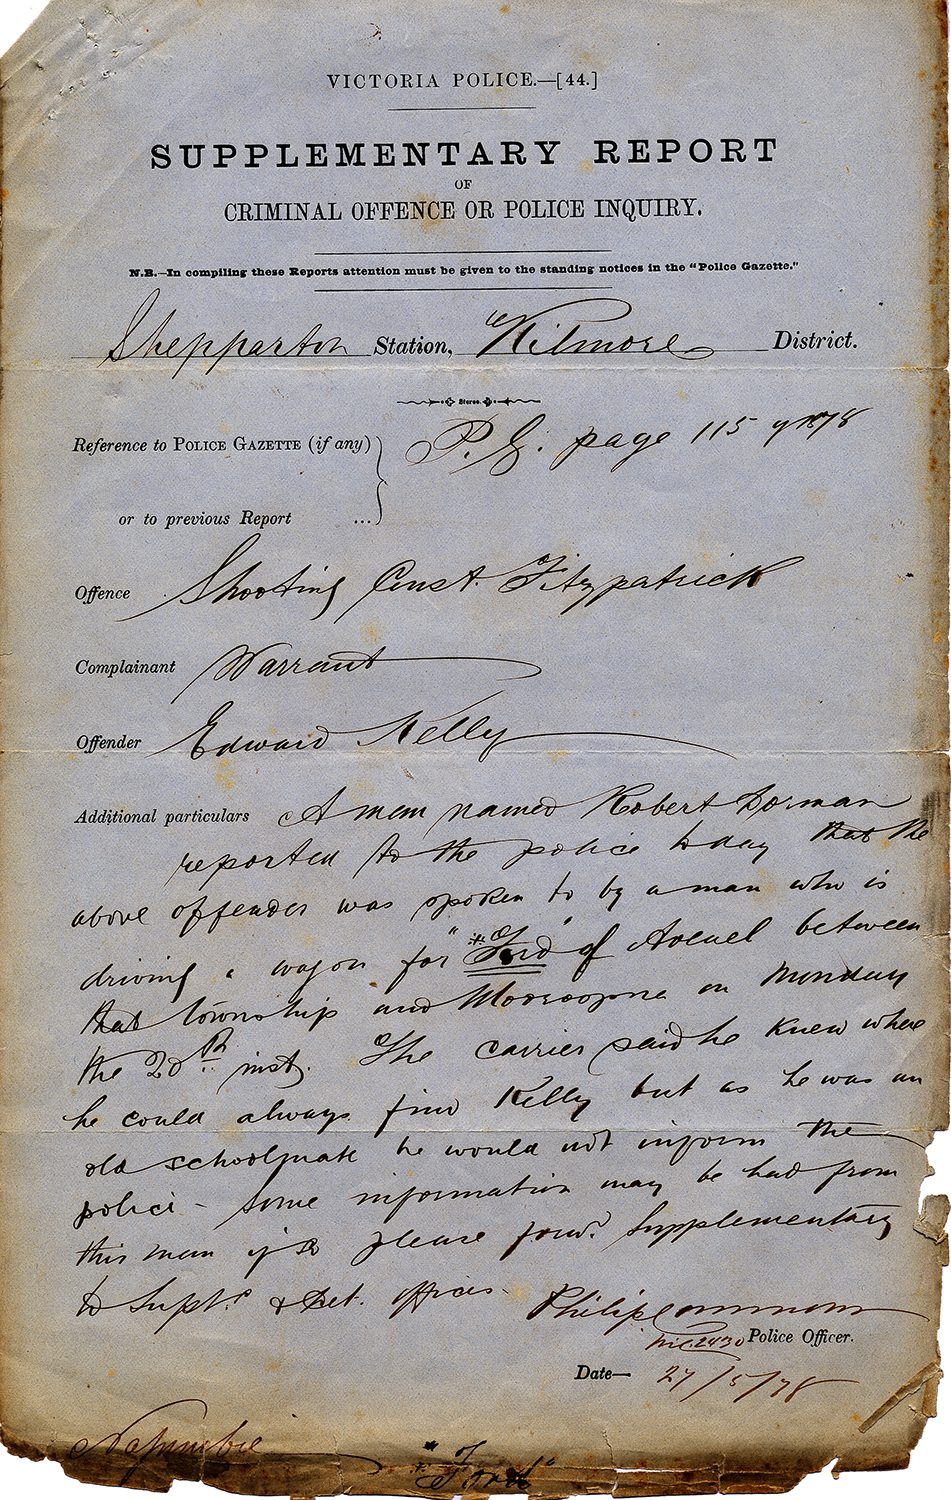 VICTORIA POLICE.—[44.]
SUPPLEMENTARY REPORT
OF
CRIMINAL OFFENCE OR POLICE INQUIRY.
N.B.—In compiling these Reports attention must be given to the standing notices in the "Police Gazette."
Shepparton Station, Kilmore District.
Stereo.
Reference to POLICE GAZETTE (if any) P.G. page 115 of 1878
or to previous Report ...
Offence Shooting Const. Fitzpatrick
Complainant Warrant
Offender Edward Kelly
Additional particulars A man named Robert Dorman
reported to the police today that the
above offender was spoken to by a man who is
driving a wagon for "Ford" of Avenel between
that township and Mooroopna on Monday
the 20th inst. The carrier said he knew where
he could always find Kelly but as he was an
old schoolmate he would not inform the
police - Some information may be had from
this man if so please forwd. Supplementary
to Supt.s & Det. offices.
Philip Commons
M.C. 2430 Police Officer.
Date— 27/5/78
* "Ford"